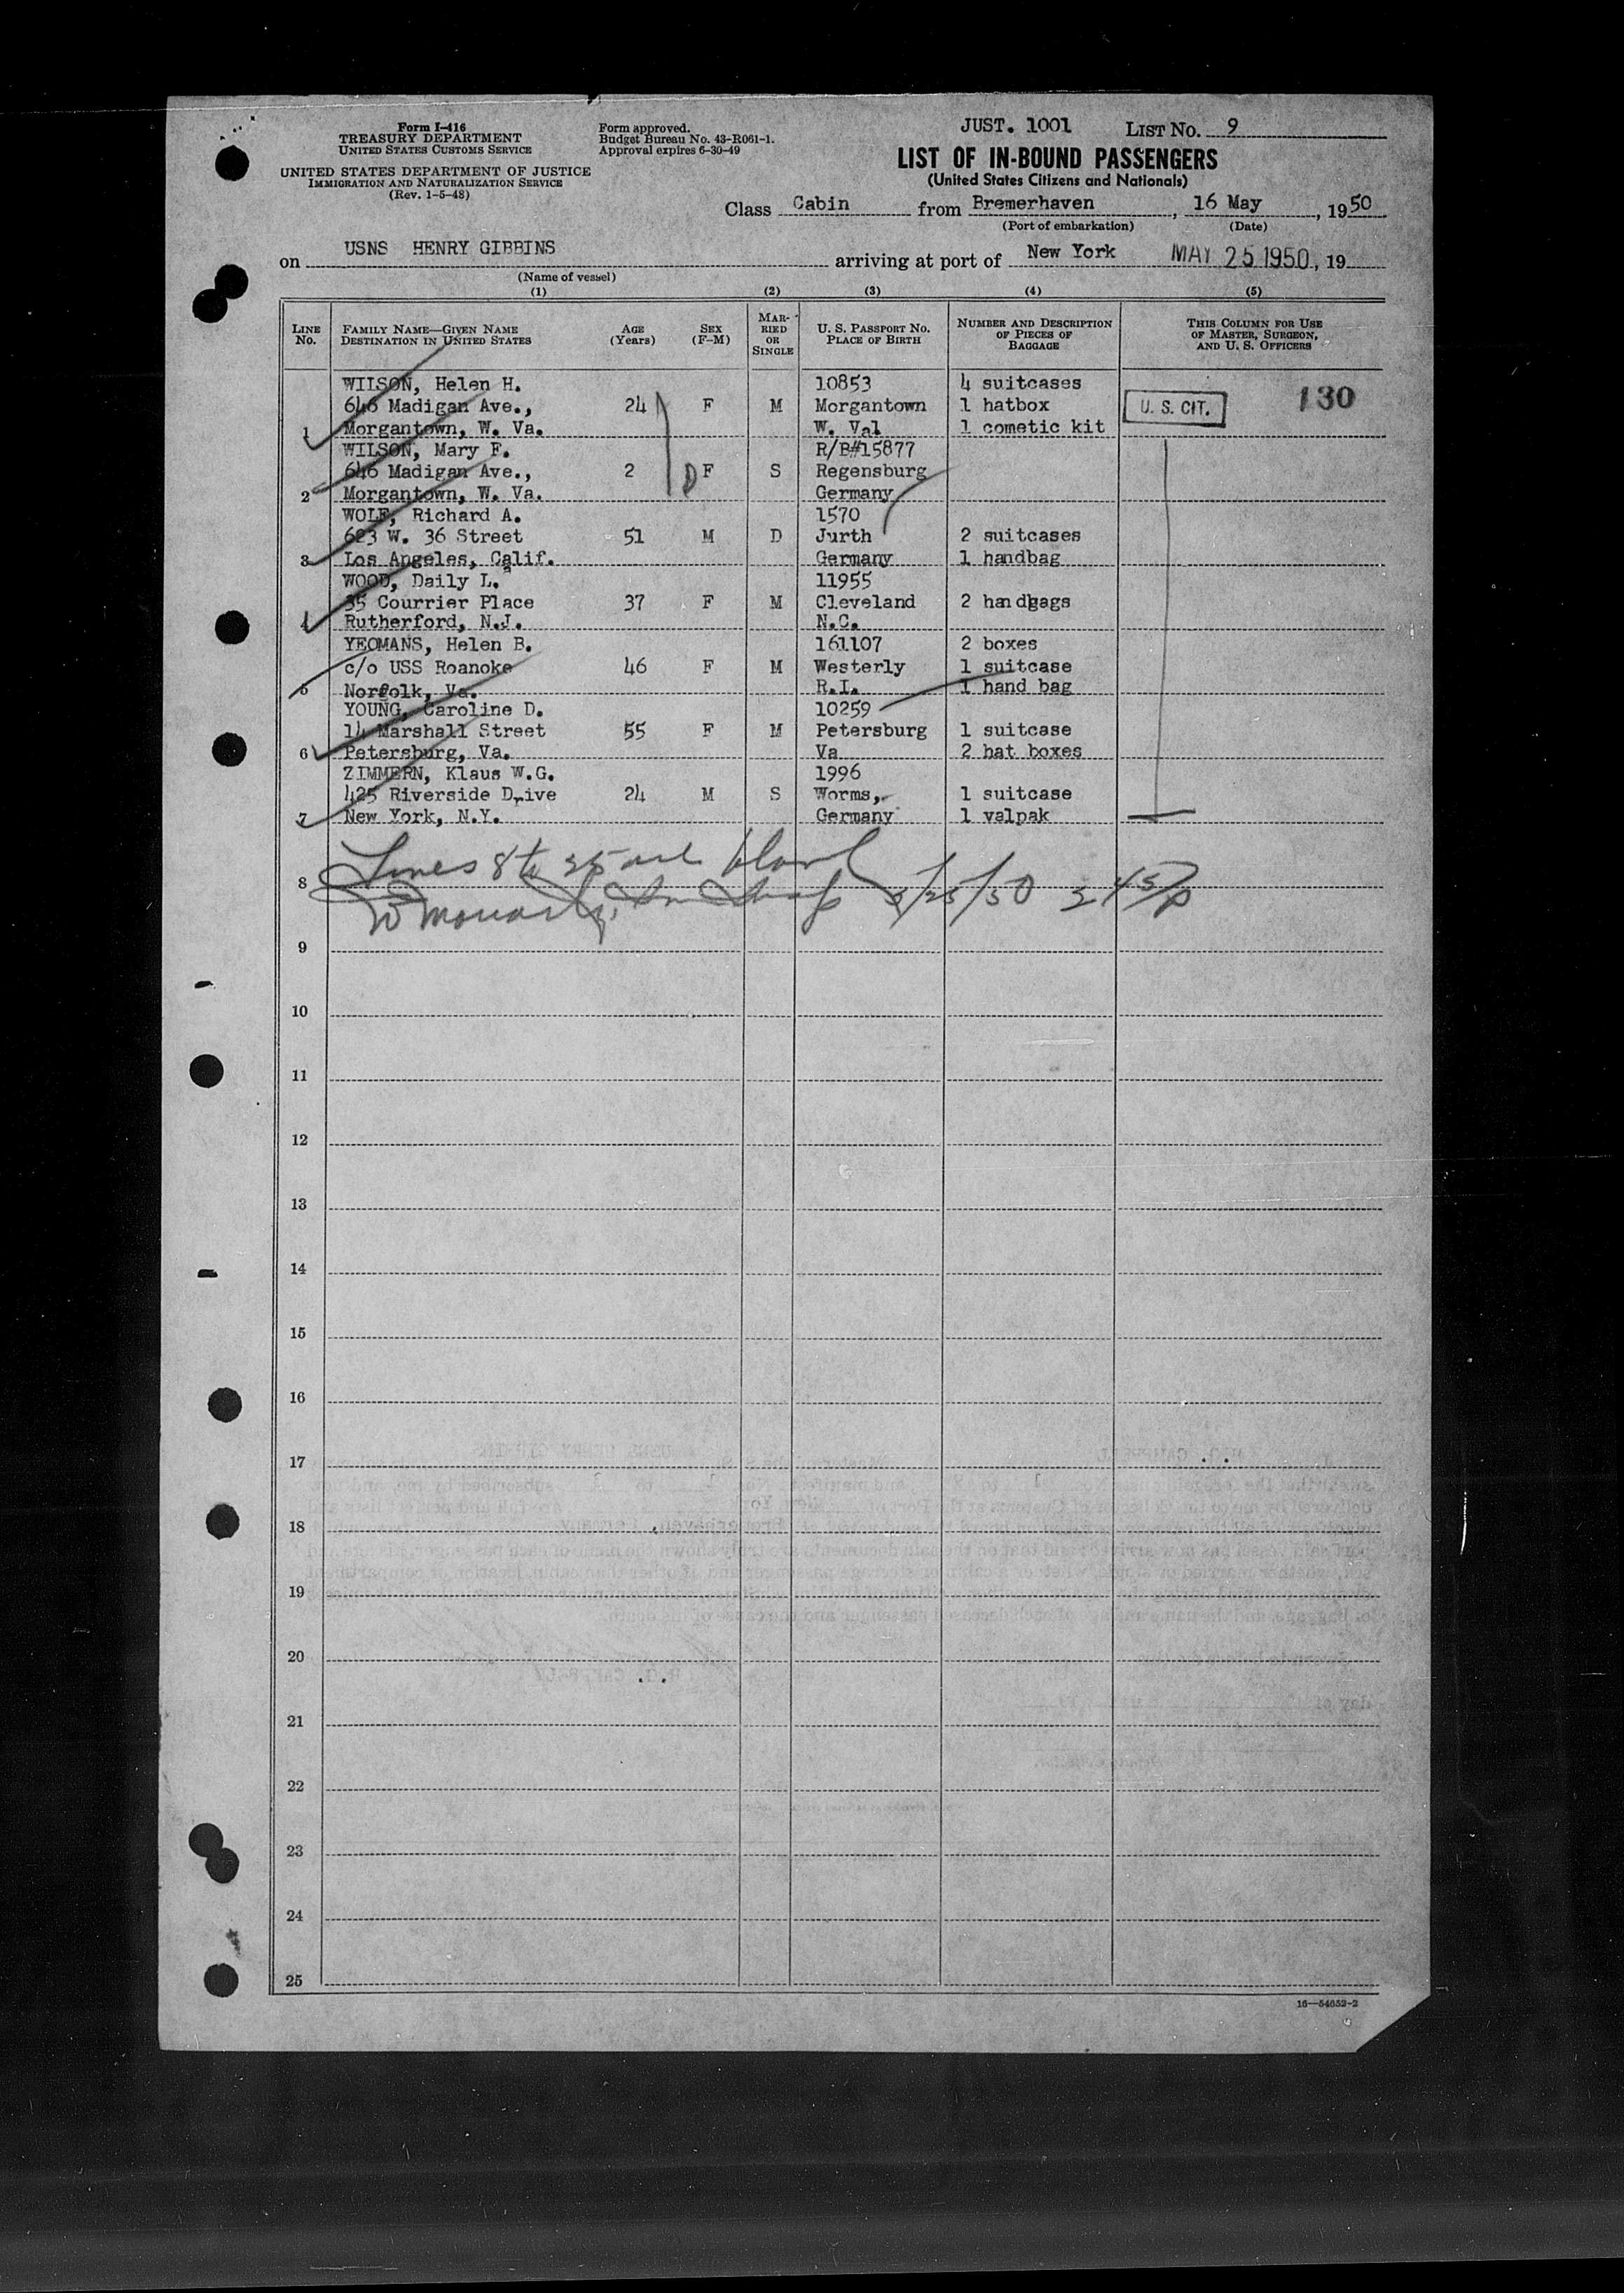 Form I-416
TREASURY DEPARTMENT
UNITED STATES CUSTOMS SERVICE
UNITED STATES DEPARTMENT OF JUSTICE
IMMIGRATION AND NATURALIZATION SERVICE
(Rev. 1-5-48)
Form approved.
Budget Bureau No. 43-R061-1.
Approval expires 6-30-49
JUST. 1001 LIST No. 9
LIST OF IN-BOUND PASSENGERS
(United States Citizens and Nationals)
Class Cabin from Bremerhaven, 16 May, 1950
(Port of embarkation) (Date)
on USNS HENRY GIBBINS arriving at port of New York MAY 25 1950, 19
(Name of vessel)
(1) (2) (3) (4) (5)
LINE No. FAMILY NAME—GIVEN NAME DESTINATION IN UNITED STATES AGE (Years) SEX (F-M) MARRIED OR SINGLE U. S. PASSPORT NO. PLACE OF BIRTH NUMBER AND DESCRIPTION OF PIECES OF BAGGAGE THIS COLUMN FOR USE OF MASTER, SURGEON, AND U. S. OFFICERS
WILSON, Helen H. 10853 4 suitcases
646 Madigan Ave., 24 F M Morgantown 1 hatbox U. S. CIT. 130
1 Morgantown, W. Va. W. Val 1 cometic kit
WILSON, Mary F. R/B#15877
646 Madigan Ave., 2 D F S Regensburg
2 Morgantown, W. Va. Germany
WOLF, Richard A. 1570
623 W. 36 Street 51 M D Jurth 2 suitcases
3 Los Angeles, Calif. Germany 1 handbag
WOOD, Daily L. 11955
35 Courrier Place 37 F M Cleveland 2 handbags
4 Rutherford, N.J. N.C.
YEOMANS, Helen B. 161107 2 boxes
c/o USS Roanoke 46 F M Westerly 1 suitcase
5 Norfolk, Va. R.I. 1 hand bag
YOUNG, Caroline D. 10259
14 Marshall Street 55 F M Petersburg 1 suitcase
6 Petersburg, Va. Va 2 hat boxes
ZIMMERN, Klaus W.G. 1996
425 Riverside Drive 24 M S Worms, 1 suitcase
7 New York, N.Y. Germany 1 valpak
Lines 8 to 25 are blank
8 5/25/50 2 45/p
9
10
11
12
13
14
15
16
17
18
19
20
21
22
23
24
25
16—54652-2